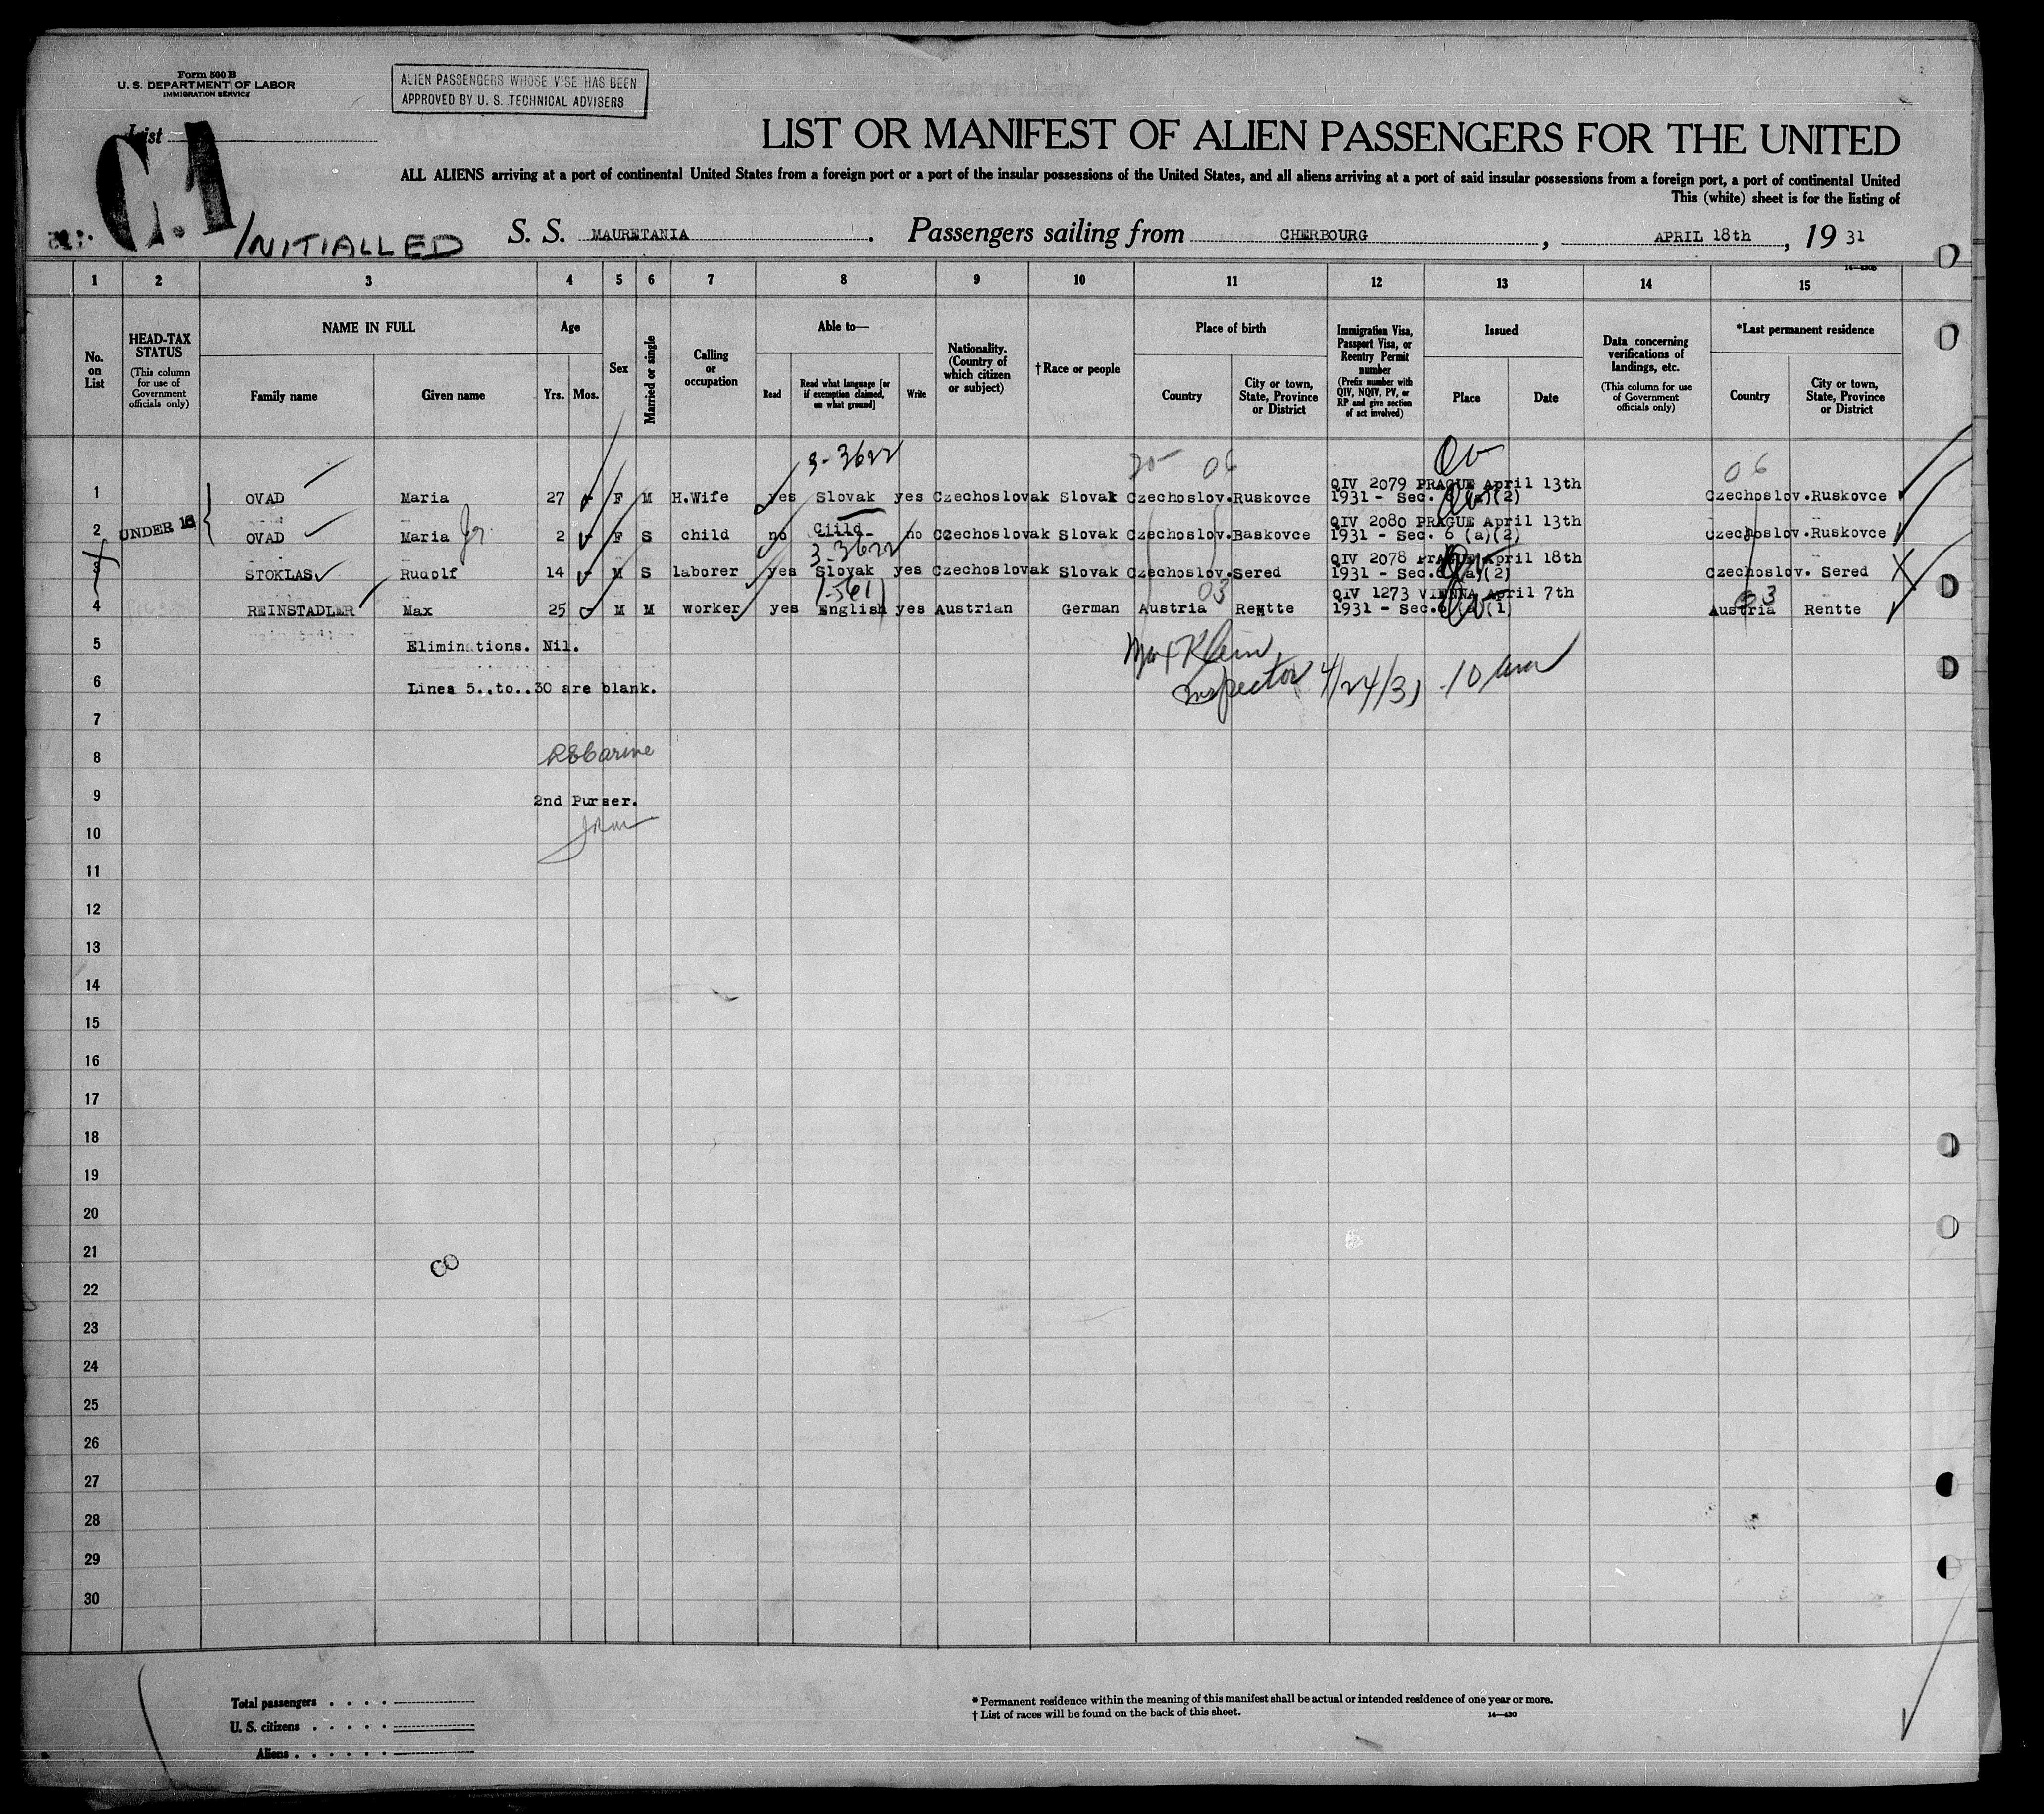 Form 500 B
U. S. DEPARTMENT OF LABOR
IMMIGRATION SERVICE
ALIEN PASSENGERS WHOSE VISE HAS BEEN
APPROVED BY U. S. TECHNICAL ADVISERS
List
C.1
INITIALLED
LIST OR MANIFEST OF ALIEN PASSENGERS FOR THE UNITED
ALL ALIENS arriving at a port of continental United States from a foreign port or a port of the insular possessions of the United States, and all aliens arriving at a port of said insular possessions from a foreign port, a port of continental United
This (white) sheet is for the listing of
S. S. MAURETANIA. Passengers sailing from CHERBOURG, APRIL 18th, 19 31
1 2 3 4 5 6 7 8 9 10 11 12 13 14 15
No. on List
HEAD-TAX STATUS
(This column for use of Government officials only)
NAME IN FULL
Family name Given name
Age
Yrs. Mos.
Sex
Married or single
Calling or occupation
Able to—
Read
Read what language [or if exemption claimed, on what ground]
Write
Nationality. (Country of which citizen or subject)
† Race or people
Place of birth
Country City or town, State, Province or District
Immigration Visa, Passport Visa, or Reentry Permit number
(Prefix number with QIV, NQIV, PV, or RP and give section of act involved)
Issued
Place Date
Data concerning verifications of landings, etc.
(This column for use of Government officials only)
*Last permanent residence
Country City or town, State, Province or District
3-3622 06 06
QIV 2079 PRAGUE April 13th
1 OVAD Maria 27 F M H.Wife yes Slovak yes Czechoslovak Slovak Czechoslov. Ruskovce 1931 - Sec. 6 (a)(2) Czechoslov. Ruskovce
QIV 2080 PRAGUE April 13th
2 UNDER 16 OVAD Maria Jr 2 F S child no Ciild no Czechoslovak Slovak Czechoslov. Baskovce 1931 - Sec. 6 (a)(2) Czechoslov. Ruskovce
3-3622
QIV 2078 PRAGUE April 18th
3 STOKLAS Rudolf 14 M S laborer yes Slovak yes Czechoslovak Slovak Czechoslov. Sered 1931 - Sec. 6 (a)(2) Czechoslov. Sered
1-561 03 03
QIV 1273 VIENNA April 7th
4 REINSTADLER Max 25 M M worker yes English yes Austrian German Austria Rentte 1931 - Sec. 6 (a)(1) Austria Rentte
5 Eliminations. Nil.
Max Klein
6 Lines 5..to..30 are blank.
Inspector 4/24/31 10 am
7
8
9 2nd Purser.
10
11
12
13
14
15
16
17
18
19
20
21
22
23
24
25
26
27
28
29
30
Total passengers
U. S. citizens
Aliens
* Permanent residence within the meaning of this manifest shall be actual or intended residence of one year or more.
† List of races will be found on the back of this sheet.
14—430